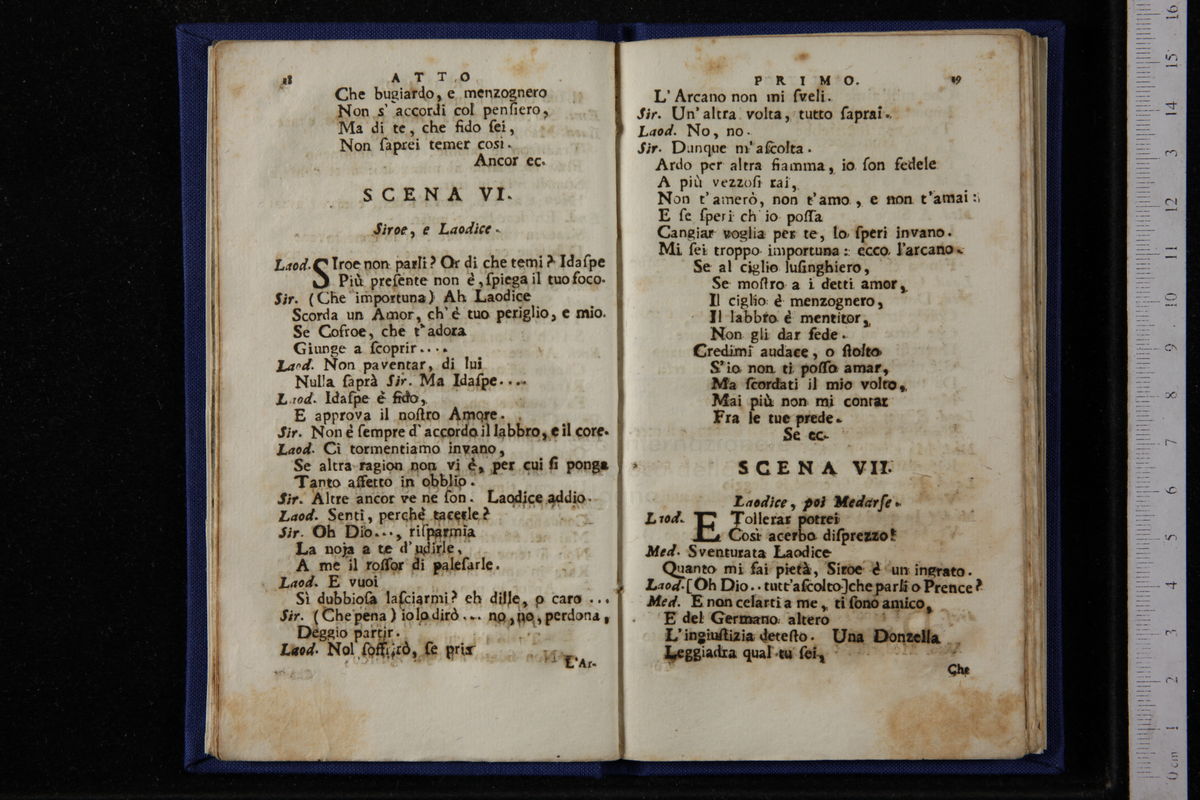 18 ATTO
Che bugiardo, e menzognero
Non s' accordi col penſiero,
Ma di te, che fido ſei,
Non ſaprei temer così.
Ancor ec.
SCENA VI.
Siroe, e Laodice.
Laod. SIroe non parli? Or di che temi? Idaſpe
Più preſente non è, ſpiega il tuo foco.
Sir. (Che importuna) Ah Laodice
Scorda un Amor, ch' è tuo periglio, e mio.
Se Coſroe, che t'adora
Giunge a ſcoprir....
Laod. Non paventar, di lui
Nulla ſaprà Sir. Ma Idaſpe....
Laod. Idaſpe è fido,
E approva il noſtro Amore.
Sir. Non è ſempre d' accordo il labbro, e il core.
Laod. Ci tormentiamo invano,
Se altra ragion non vi è, per cui ſi ponga
Tanto affetto in obblio.
Sir. Altre ancor ve ne ſon. Laodice addio.
Laod. Senti, perchè tacerle?
Sir. Oh Dio..., riſparmia
La noja a te d'udirle,
A me il roſſor di paleſarle.
Laod. E vuoi
Sì dubbioſa laſciarmi? eh dille, o caro ...
Sir. (Che pena) io lo dirò... no, no, perdona,
Deggio partir.
Laod. Nol ſoffrirò, ſe pria
L'Ar-
PRIMO. 19
L' Arcano non mi ſveli.
Sir. Un' altra volta, tutto ſaprai.
Laod. No, no.
Sir. Dunque m' aſcolta.
Ardo per altra fiamma, io ſon fedele
A più vezzoſi rai,
Non t' amerò, non t'amo, e non t'amai:
E ſe ſperi ch' io poſſa
Cangiar voglia per te, lo ſperi invano.
Mi ſei troppo importuna: ecco l'arcano.
Se al ciglio luſinghiero,
Se moſtro a i detti amor,
Il ciglio è menzognero,
Il labbro è mentitor,
Non gli dar fede.
Credimi audace, o ſtolto
S'io non ti poſſo amar,
Ma ſcordati il mio volto,
Mai più non mi contar
Fra le tue prede.
Se ec.
SCENA VII.
Laodice, poi Medarſe.
Laod. E Tollerar potrei
Così acerbo diſprezzo?
Med. Sventurata Laodice
Quanto mi fai pietà, Siroe è un ingrato.
Laod. [Oh Dio.. tutt'aſcolto] che parli o Prence?
Med. E non celarti a me, ti ſono amico,
E del Germano altero
L'ingiuſtizia deteſto. Una Donzella
Leggiadra qual tu ſei,
Che